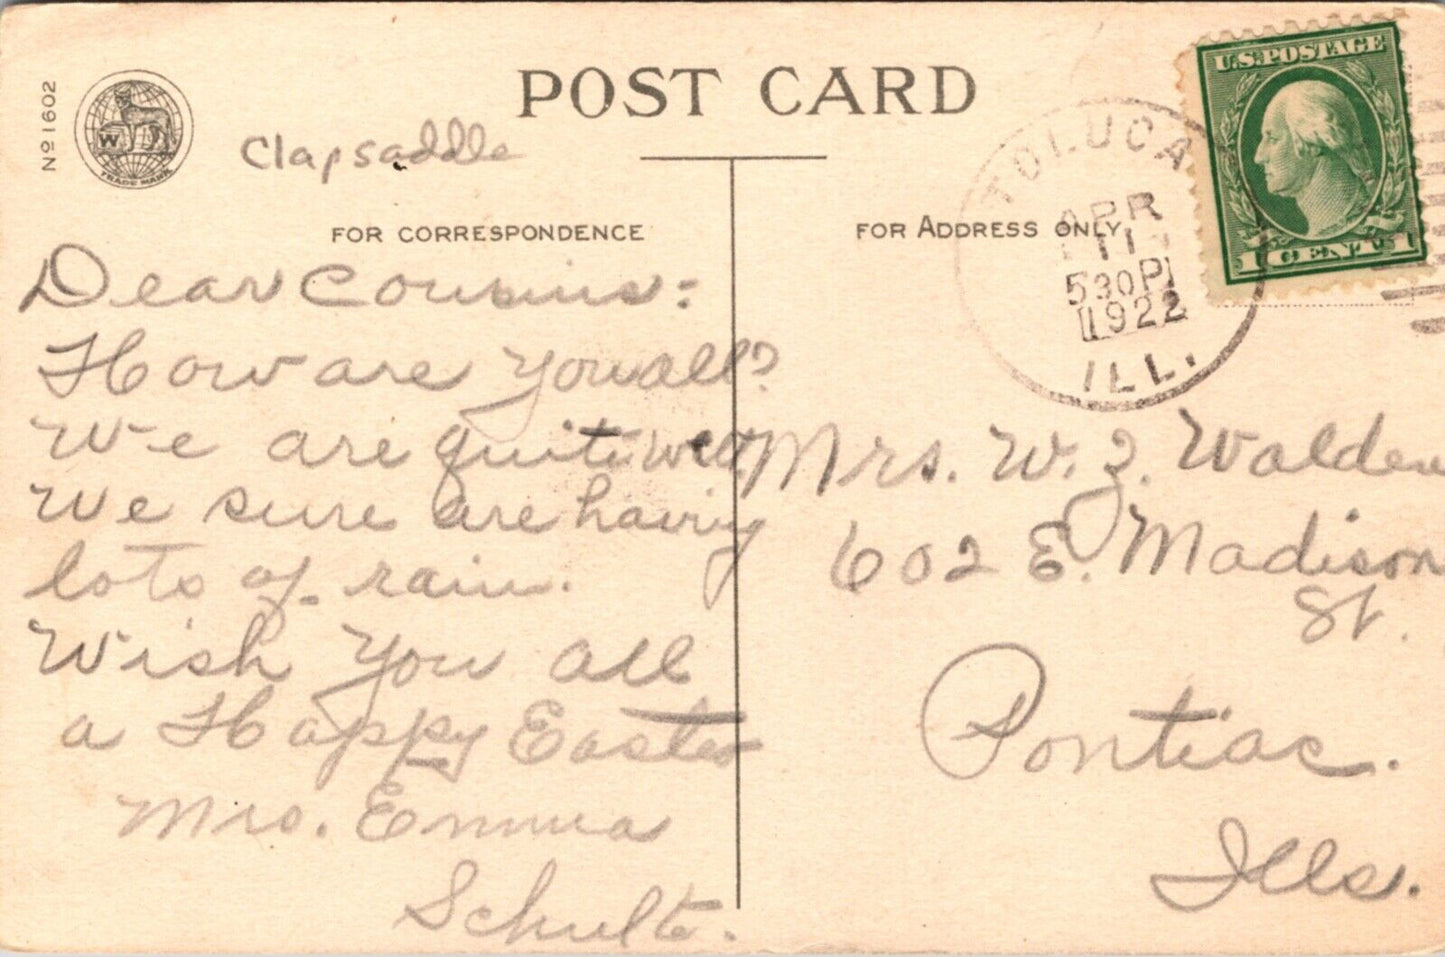 POST CARD
No 1602
W
TRADE MARK
Clapsaddle
FOR CORRESPONDENCE
Dear Cousins:
How are you all?
We are quite well.
We sure are having
lots of rain.
Wish you all
a Happy Easter
Mrs. Emma
Schulte.
FOR ADDRESS ONLY
TOLUCA
APR
11
530P
1922
ILL.
U.S. POSTAGE
1 CENT 1
Mrs. W. Z. Walden
602 E. Madison
St.
Pontiac.
Ills.